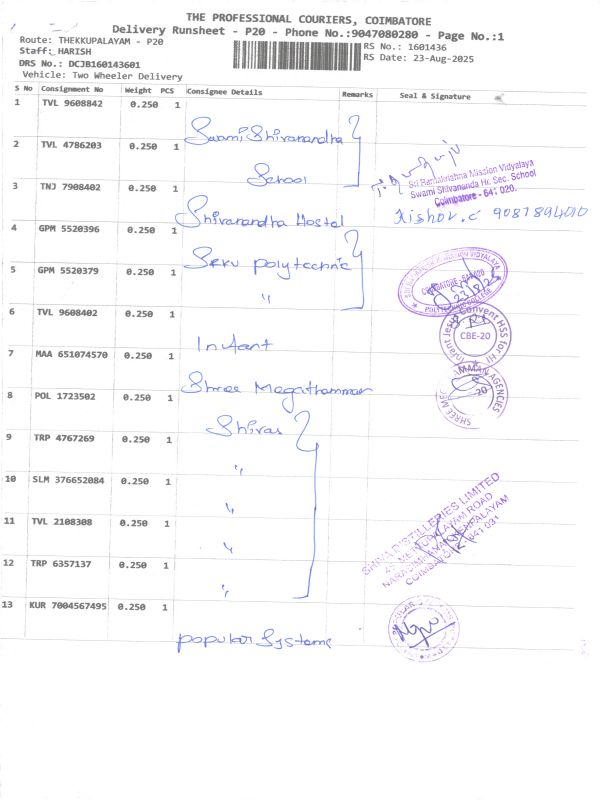 THE PROFESSIONAL COURIERS, COIMBATORE
Delivery Runsheet - P20 - Phone No.:9047080280 - Page No.:1
Route: THEKKUPALAYAM - P20
RS No.: 1601436
Staff: HARISH
RS Date: 23-Aug-2025
DRS No.: DCJB160143601
Vehicle: Two Wheeler Delivery
S No Consignment No Weight PCS Consignee Details Remarks Seal & Signature
1 TVL 9608842 0.250 1
Swami Shivanandha
2 TVL 4786203 0.250 1
School
Sri Ramakrishna Mission Vidyalaya
Swami Shivananda Hr. Sec. School
Coimbatore - 641 020.
3 TNJ 7908402 0.250 1
Shivanandha Hostel
Kishor.c 9087894010
4 GPM 5520396 0.250 1
SRKV polytechnic
5 GPM 5520379 0.250 1
"
POLYTECHNIC COLLEGE
6 TVL 9608402 0.250 1
Infant
Infant Jesus Convent HSS for
CBE-20
7 MAA 651074570 0.250 1
Shree Megathammar
AMMAN AGENCIES
20
8 POL 1723502 0.250 1
Shivas
9 TRP 4767269 0.250 1
"
10 SLM 376652084 0.250 1
"
SHIVA DISTILLERIES LIMITED
METTUPALAYAM ROAD
COIMBATORE 641 031
11 TVL 2108308 0.250 1
"
12 TRP 6357137 0.250 1
"
13 KUR 7004567495 0.250 1
popular Systems